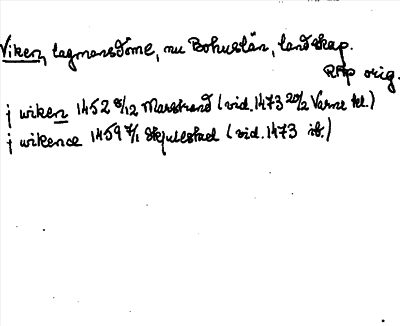 Viken, lagmansdöme, nu Bohuslän, landskap.
RAp orig.
j wiken 1452 8/12 Marstrand (vid. 1473 20/2 Varne kl.)
j wikenæ 1459 7/1 Skjulestad (vid. 1473 ib.)